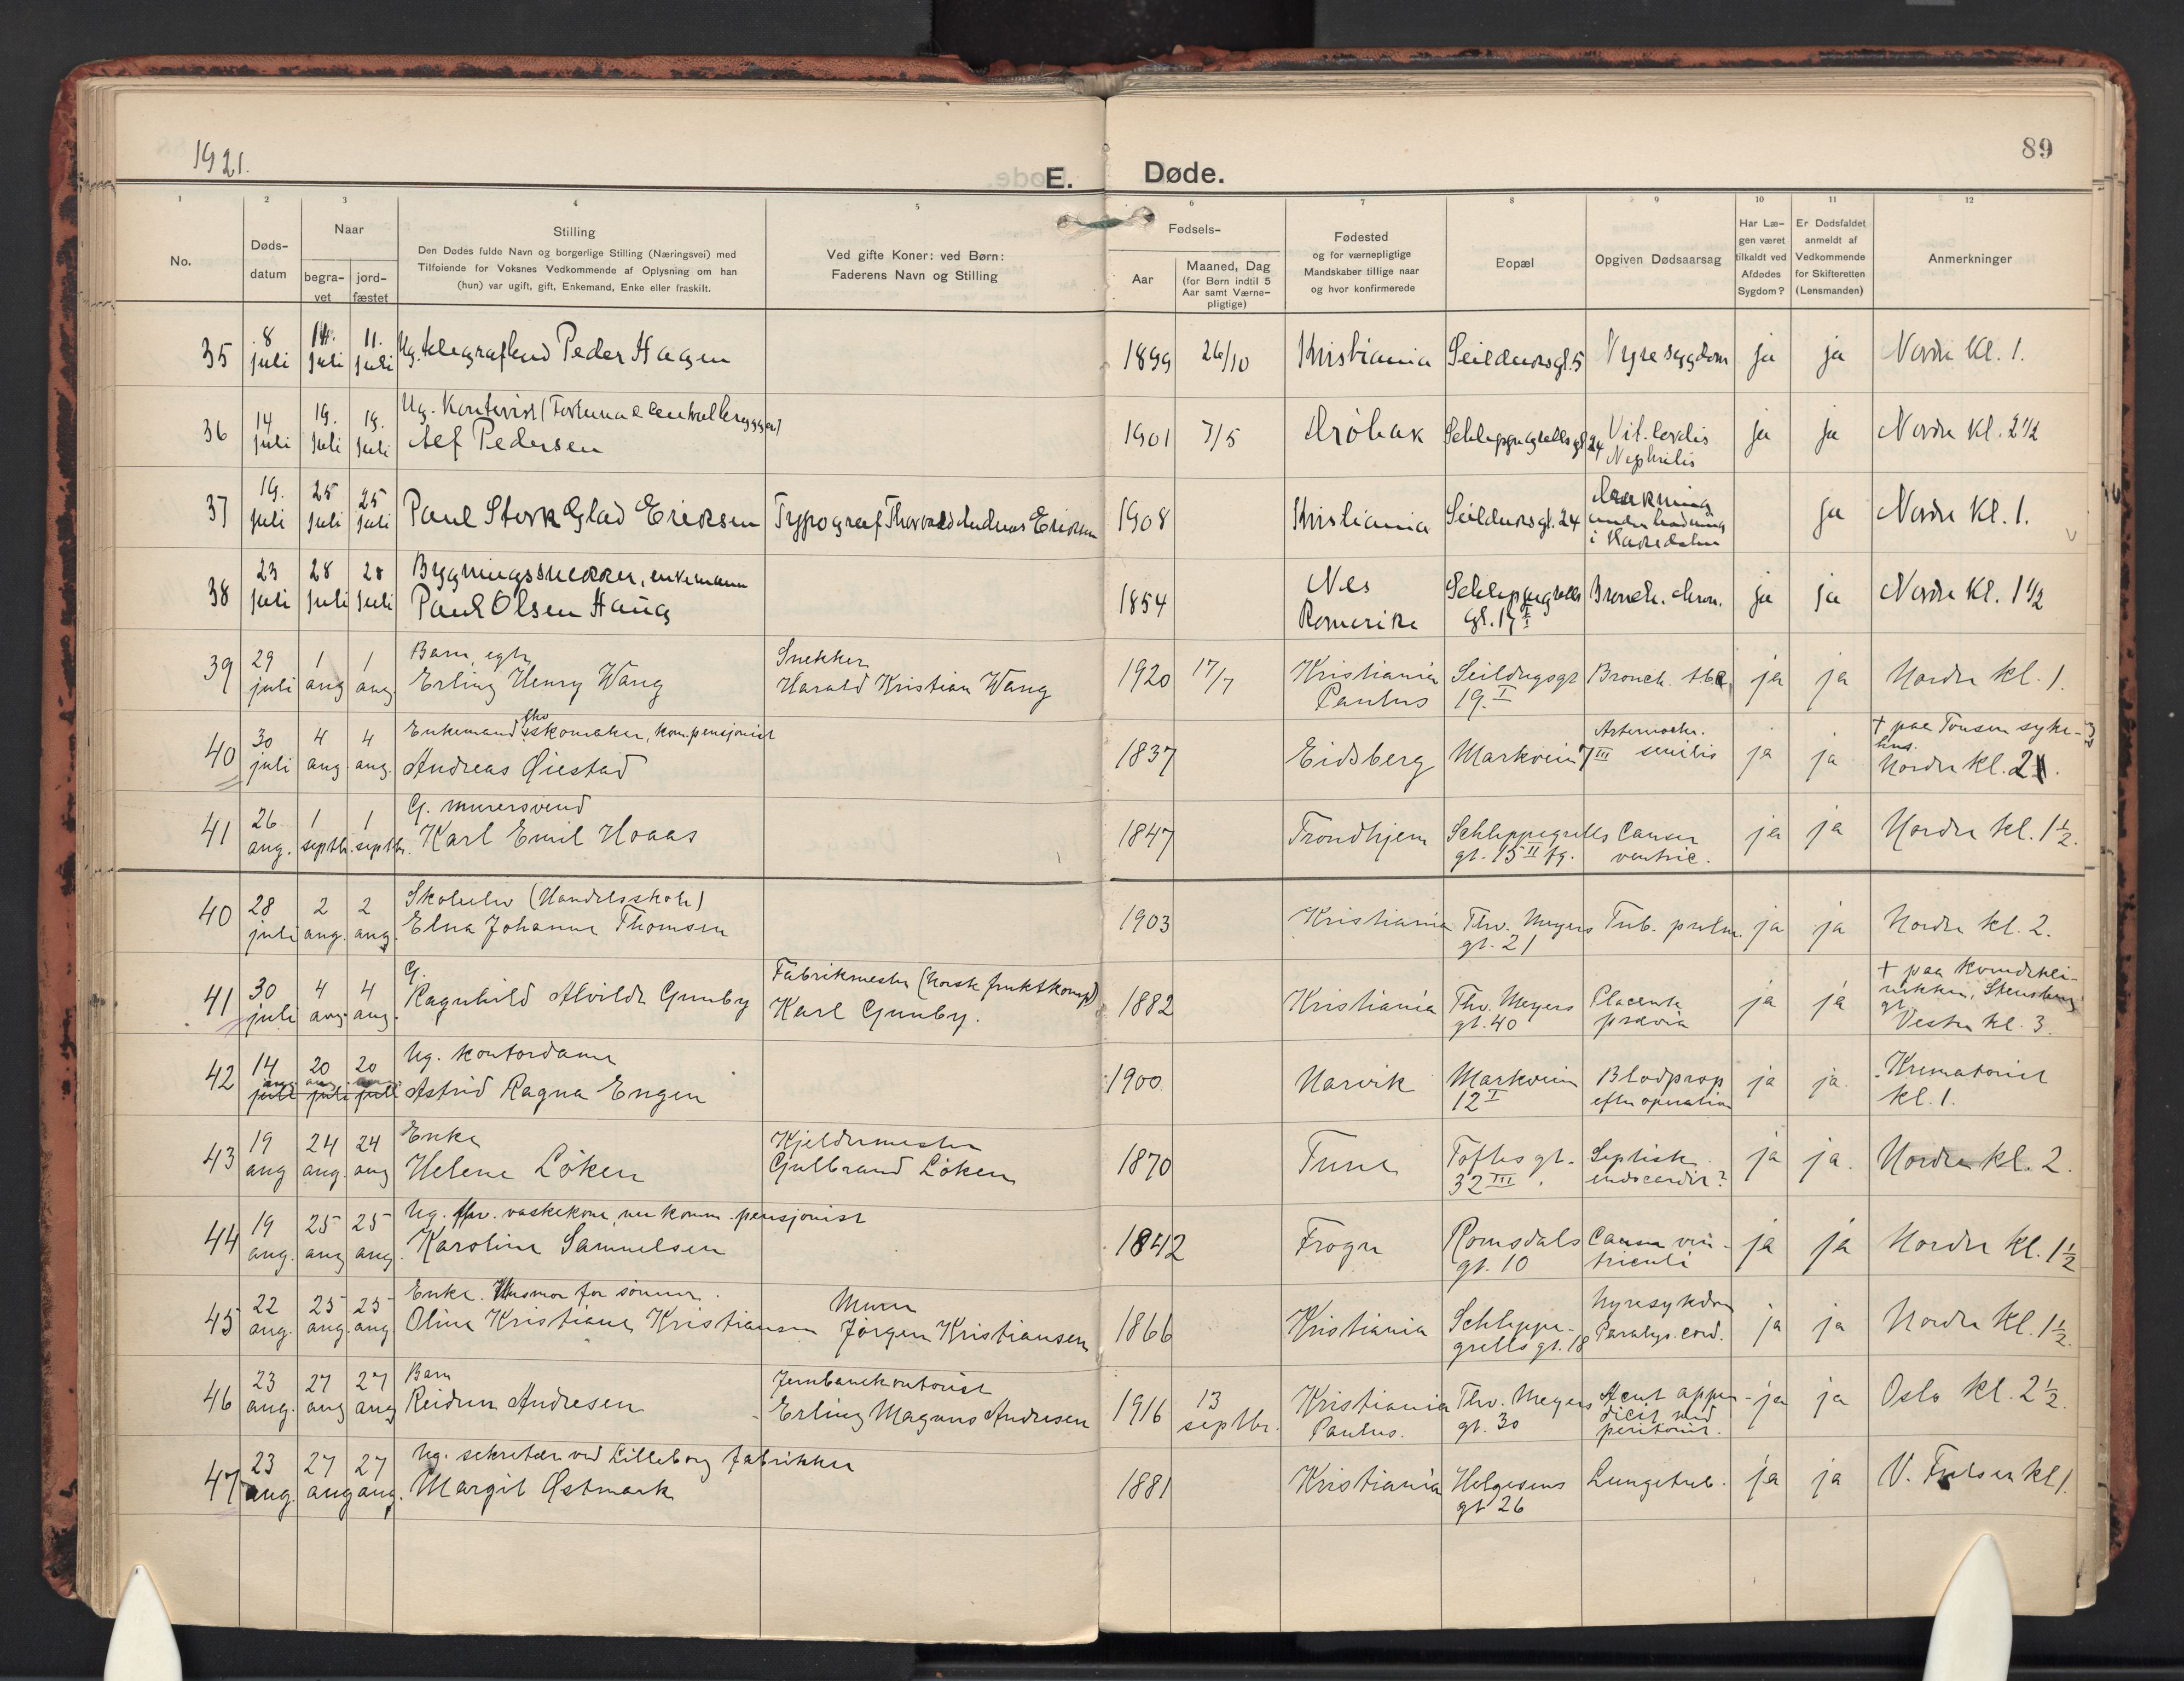 1921.
E. Døde.
89
1 2 3 4 5 6 7 8 9 10 11 12
No.
Døds-
datum
Naar
begra-
vet
jord-
fæstet
Stilling
Den Dødes fulde Navn og borgerlige Stilling (Næringsvei) med
Tilføiende for Voksnes Vedkommende af Oplysning om han
(hun) var ugift, gift, Enkemand, Enke eller fraskilt.
Ved gifte Koner: ved Børn:
Faderens Navn og Stilling
Fødsels-
Aar
Maaned, Dag
(for Børn indtil 5
Aar samt Værne-
pligtige)
Fødested
og for værnepligtige
Mandskaber tillige naar
og hvor konfirmerede
Bopæl
Opgiven Dødsaarsag
Har Læ-
gen været
tilkaldt ved
Afdødes
Sygdom?
Er Dødsfaldet
anmeldt af
Vedkommende
for Skifteretten
(Lensmanden)
Anmerkninger
35 8 juli juli 11. juli Ug. Peder Hagen 1899 26/10 Kristiania Seilduksgt. 5 Nyresygdom ja ja Nordre kl. 1.
36 14 juli 19. juli 19. juli Ug. Kontorist
Pedersen 1901 7/5 Drøbak Schleppegrells gt 24 Vit. cordis
Nephritis ja ja Nordre kl. 2½
37 19. juli 25 juli 25 juli Paul Stork Glad Eriksen Typograf Thorvald Andreas Eriksen 1908 Kristiania Seilduksgt. 24 Drukning
under badning
i ja Nordre kl. 1.
38 23 juli 28 juli 28 juli Bygningssnekker, enkemann
Paul Olsen Haug 1854 Nes
Romerike Schleppegrells
gt. 17 I Bronch. chron. ja ja Nordre kl. 1½
39 29 juli 1 aug 1 aug. Barn, egte
Erling Henry Wang Snekker
Harald Kristian Wang 1920 17/7 Kristiania
Paulus Seildugsgt
19. I Bronch. tbc. ja ja Nordre kl. 1.
40 30 juli 4 aug. 4 aug. Enkemand fhv skomaker, kom. pensjonist
Andreas Øiestad 1837 Eidsberg Markveien 7 III
senilis ja ja + paa Tonsen syke-
hus.
Nordre kl. 2
41 26 aug. 1 septbr. 1 septbr. G. murersvend
Karl Emil Hoaas 1847 Trondhjem Schleppegrells
gt. 15 II fg. Cancer
ventric. ja ja Nordre kl. 1½.
40 28 juli 2 aug. 2 aug. Skoleelev (Handelsskole)
Elna Johanne Thomsen 1903 Kristiania Thv. Meyers
gt. 21 Tub. pulm. ja ja Nordre kl. 2.
41 30 juli 4 aug. 4 aug. G.
Ragnhild Alvilde Gunby Fabrikmester (norsk fruktkomp)
Karl Gunby. 1882 Kristiania Thv. Meyers
gt. 40 Placenta
prævia ja ja + paa kvindekli-
nikken, Stensberg
gt.
Vestre kl. 3.
42 14 aug. juli 20 aug. juli 20 aug. juli Ug. kontordame
Astrid Ragna Engen 1900 Narvik Markveien
12 I Blodprop
efter operation ja ja. Krematoriet
kl. 1.
43 19 aug 24 aug. 24 aug Enke
Helene Løken Kjeldermester
Gulbrand Løken 1870 Tune Toftes gt.
32 III. Septisk
endocardit? ja ja. Nordre kl. 2.
44 19 aug. 25 aug 25 aug. Ug. fhv. vaskekone, nu komm. pensjonist
Karoline Samuelsen 1842 Frogn Romsdals
gt. 10 Cancer ven-
triculi ja ja Nordre kl. 1½
45 22 aug. 25 aug. 25 aug. Enke. Husmor for sønner.
Oline Kristiane Kristiansen Murer
Jørgen Kristiansen 1866 Kristiania Schleppe-
grells gt. 18 Nyresykdom
Paralys. cord. ja ja Nordre kl. 1½.
46 23 aug. 27 aug 27 aug Barn
Reidun Andresen Jernbanekontorist
Erling Magnus Andresen 1916 13 septbr. Kristiania
Paulus. Thv. Meyers
gt. 30 Acut appen-
dicit med
peritonit. ja ja Oslo kl. 2½.
47 23 aug. 27 aug 27 aug. Ug. sekretær ved Lilleborg fabrikker
Margit Østmark 1881 Kristiania Helgesens
gt 26 Lungetub. ja ja V. Frelser kl 1.